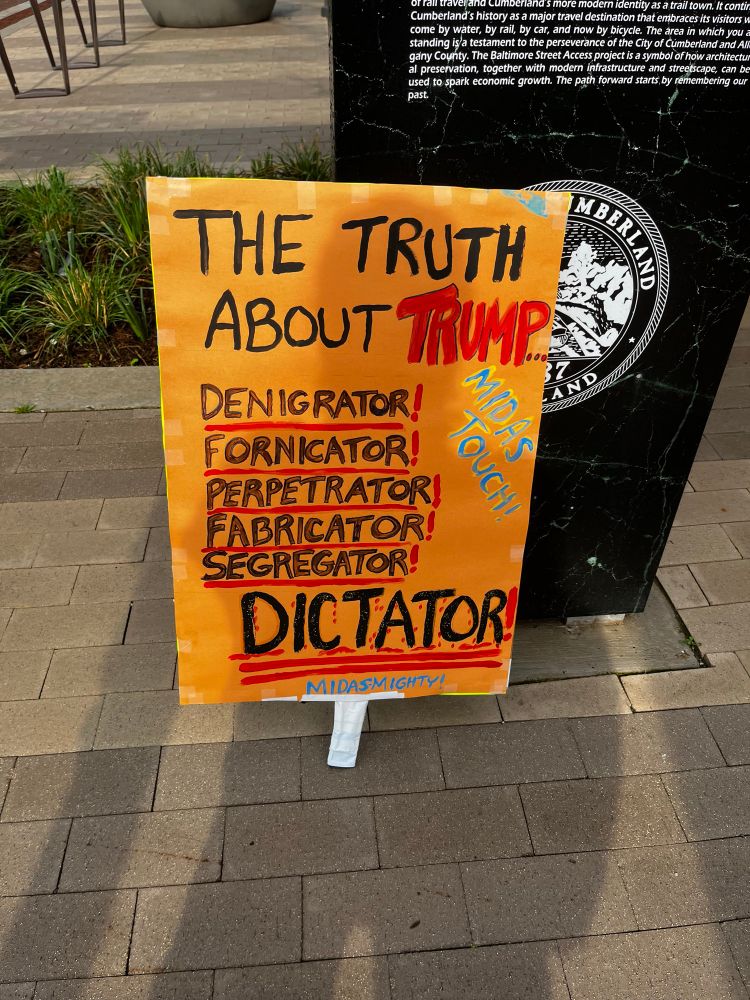 of rail travel and Cumberland's more modern identity as a trail town. It contin
Cumberland's history as a major travel destination that embraces its visitors w
come by water, by rail, by car, and now by bicycle. The area in which you a
standing is a testament to the perseverance of the City of Cumberland and All
gany County. The Baltimore Street Access project is a symbol of how architectur
al preservation, together with modern infrastructure and streetscape, can be
used to spark economic growth. The path forward starts by remembering our
past.
UMBERLAND
87
LAND
THE TRUTH
ABOUT TRUMP...
MIDAS
TOUCH!
DENIGRATOR!
FORNICATOR!
PERPETRATOR!
FABRICATOR!
SEGREGATOR!
DICTATOR!
MIDASMIGHTY!